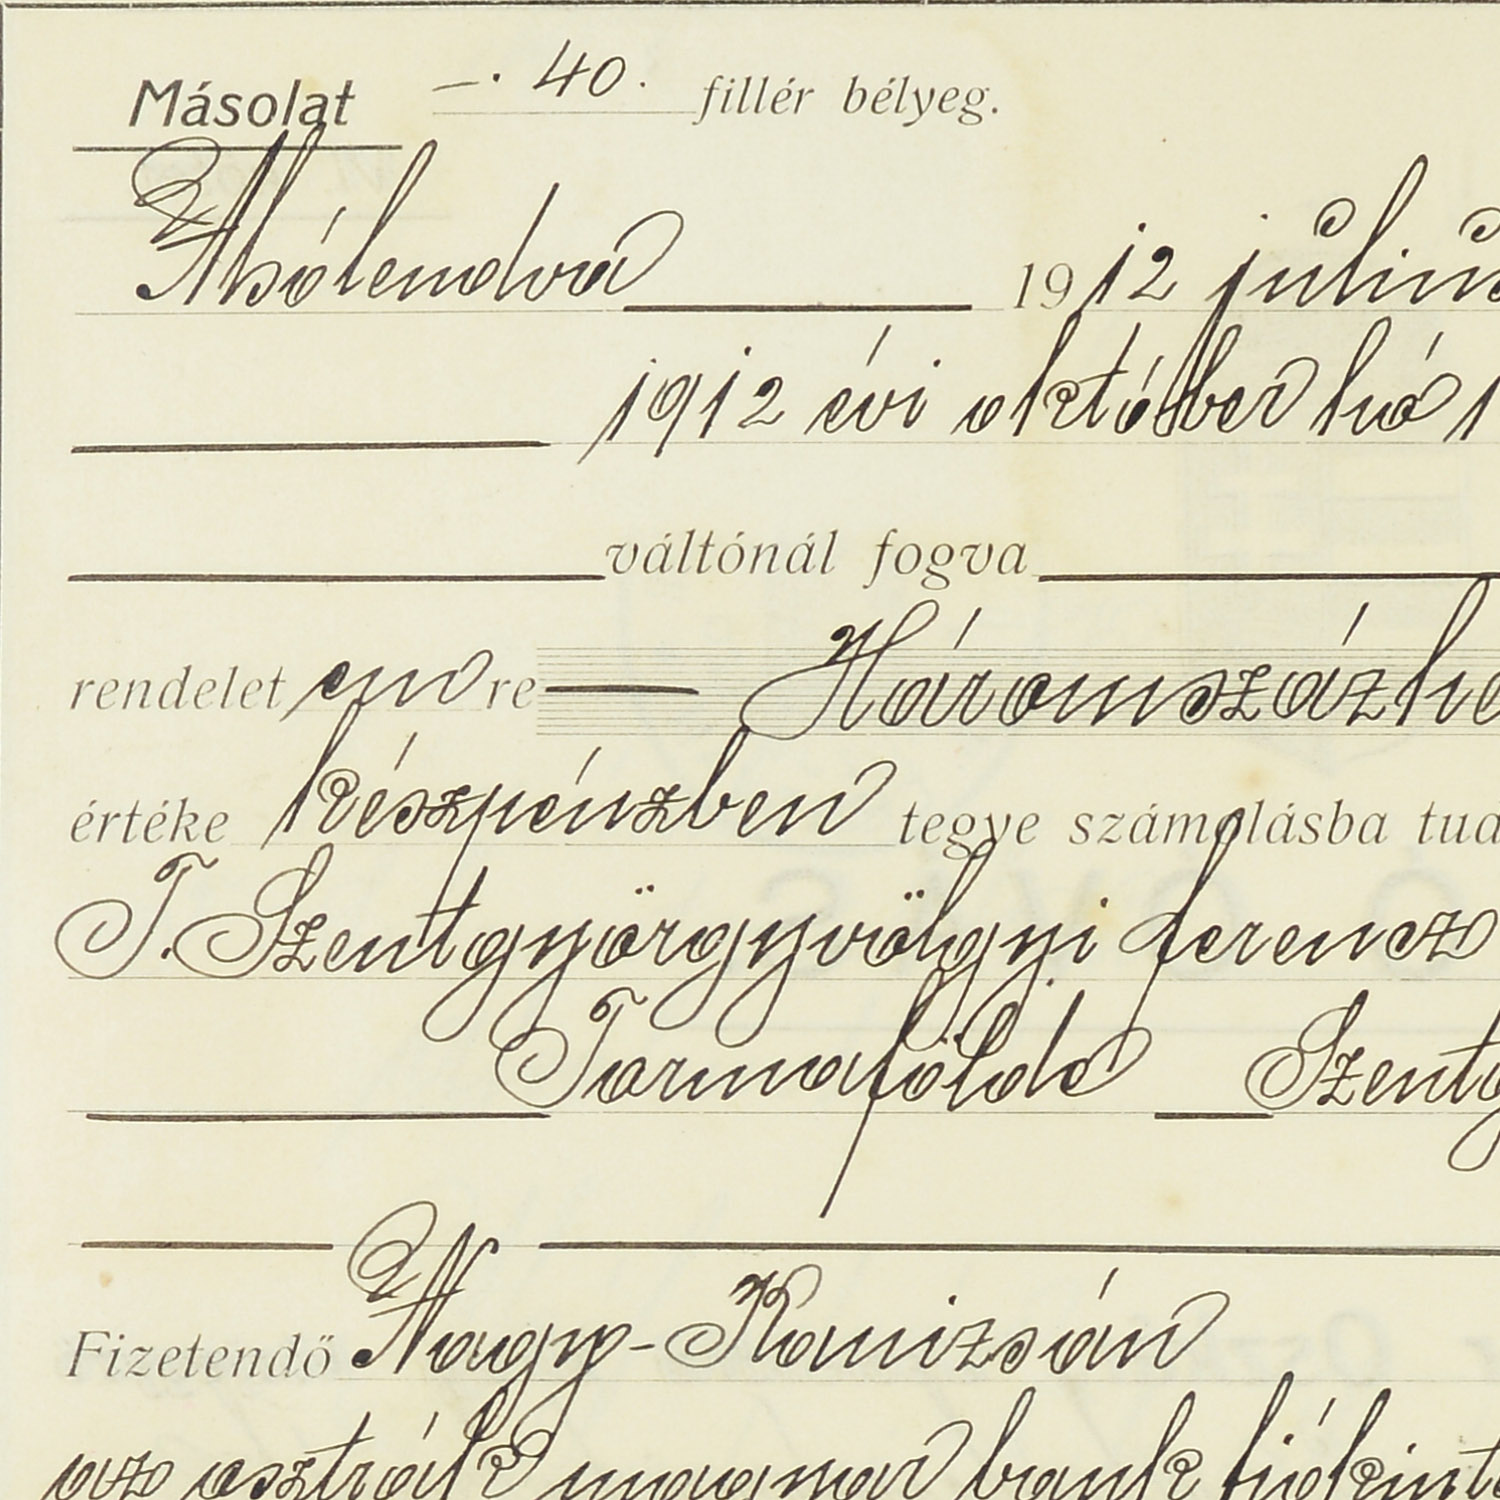 Másolat —. 40. fillér bélyeg.
Alsólendva 1912 július
1912 évi október hó 1
váltónál fogva
rendelet em re Háromszázhe
értéke készpénzben tegye számolásba tud
T. Szentgyörgyvölgyi ferencz
Tormafölde Szentg
Fizetendő Nagy-Kanizsán
az osztrák magyar bank fiókint